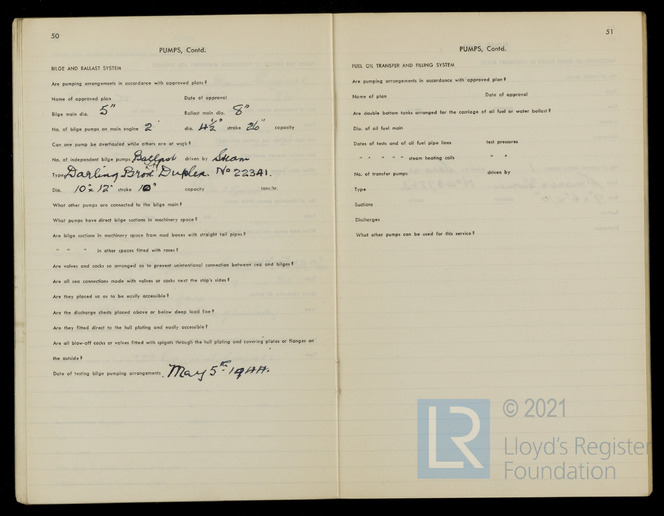 50
PUMPS, Contd.
BILGE AND BALLAST SYSTEM
Are pumping arrangements in accordance with approved plans?
Name of approved plan Date of approval
Bilge main dia. 5" Ballast main dia. 8"
No. of bilge pumps on main engine 2 dia. 4½" stroke 26" capacity
Can one pump be overhauled while others are at work?
No. of independent bilge pumps Ballast driven by Steam
Type Darling Bros Duplex. No 22341.
Dia. 10"x 12" stroke 10" capacity tons/hr.
What other pumps are connected to the bilge main?
What pumps have direct bilge suctions in machinery space?
Are bilge suctions in machinery space from mud boxes with straight tail pipes?
" " " in other spaces fitted with roses?
Are valves and cocks so arranged as to prevent unintentional connection between sea and bilges?
Are all sea connections made with valves or cocks next the ship's sides?
Are they placed so as to be easily accessible?
Are the discharge chests placed above or below deep load line?
Are they fitted direct to the hull plating and easily accessible?
Are all blow-off cocks or valves fitted with spigots through the hull plating and covering plates or flanges on
the outside?
Date of testing bilge pumping arrangements May 5th 1944.
51
PUMPS, Contd.
FUEL OIL TRANSFER AND FILLING SYSTEM
Are pumping arrangements in accordance with approved plan?
Name of plan Date of approval
Are double bottom tanks arranged for the carriage of oil fuel or water ballast?
Dia. of oil fuel main
Dates of tests and of oil fuel pipe lines test pressures
" " " " " steam heating coils " "
No. of transfer pumps driven by
Type
Suctions
Discharges
What other pumps can be used for this service?
LR
© 2021
Lloyd's Register
Foundation